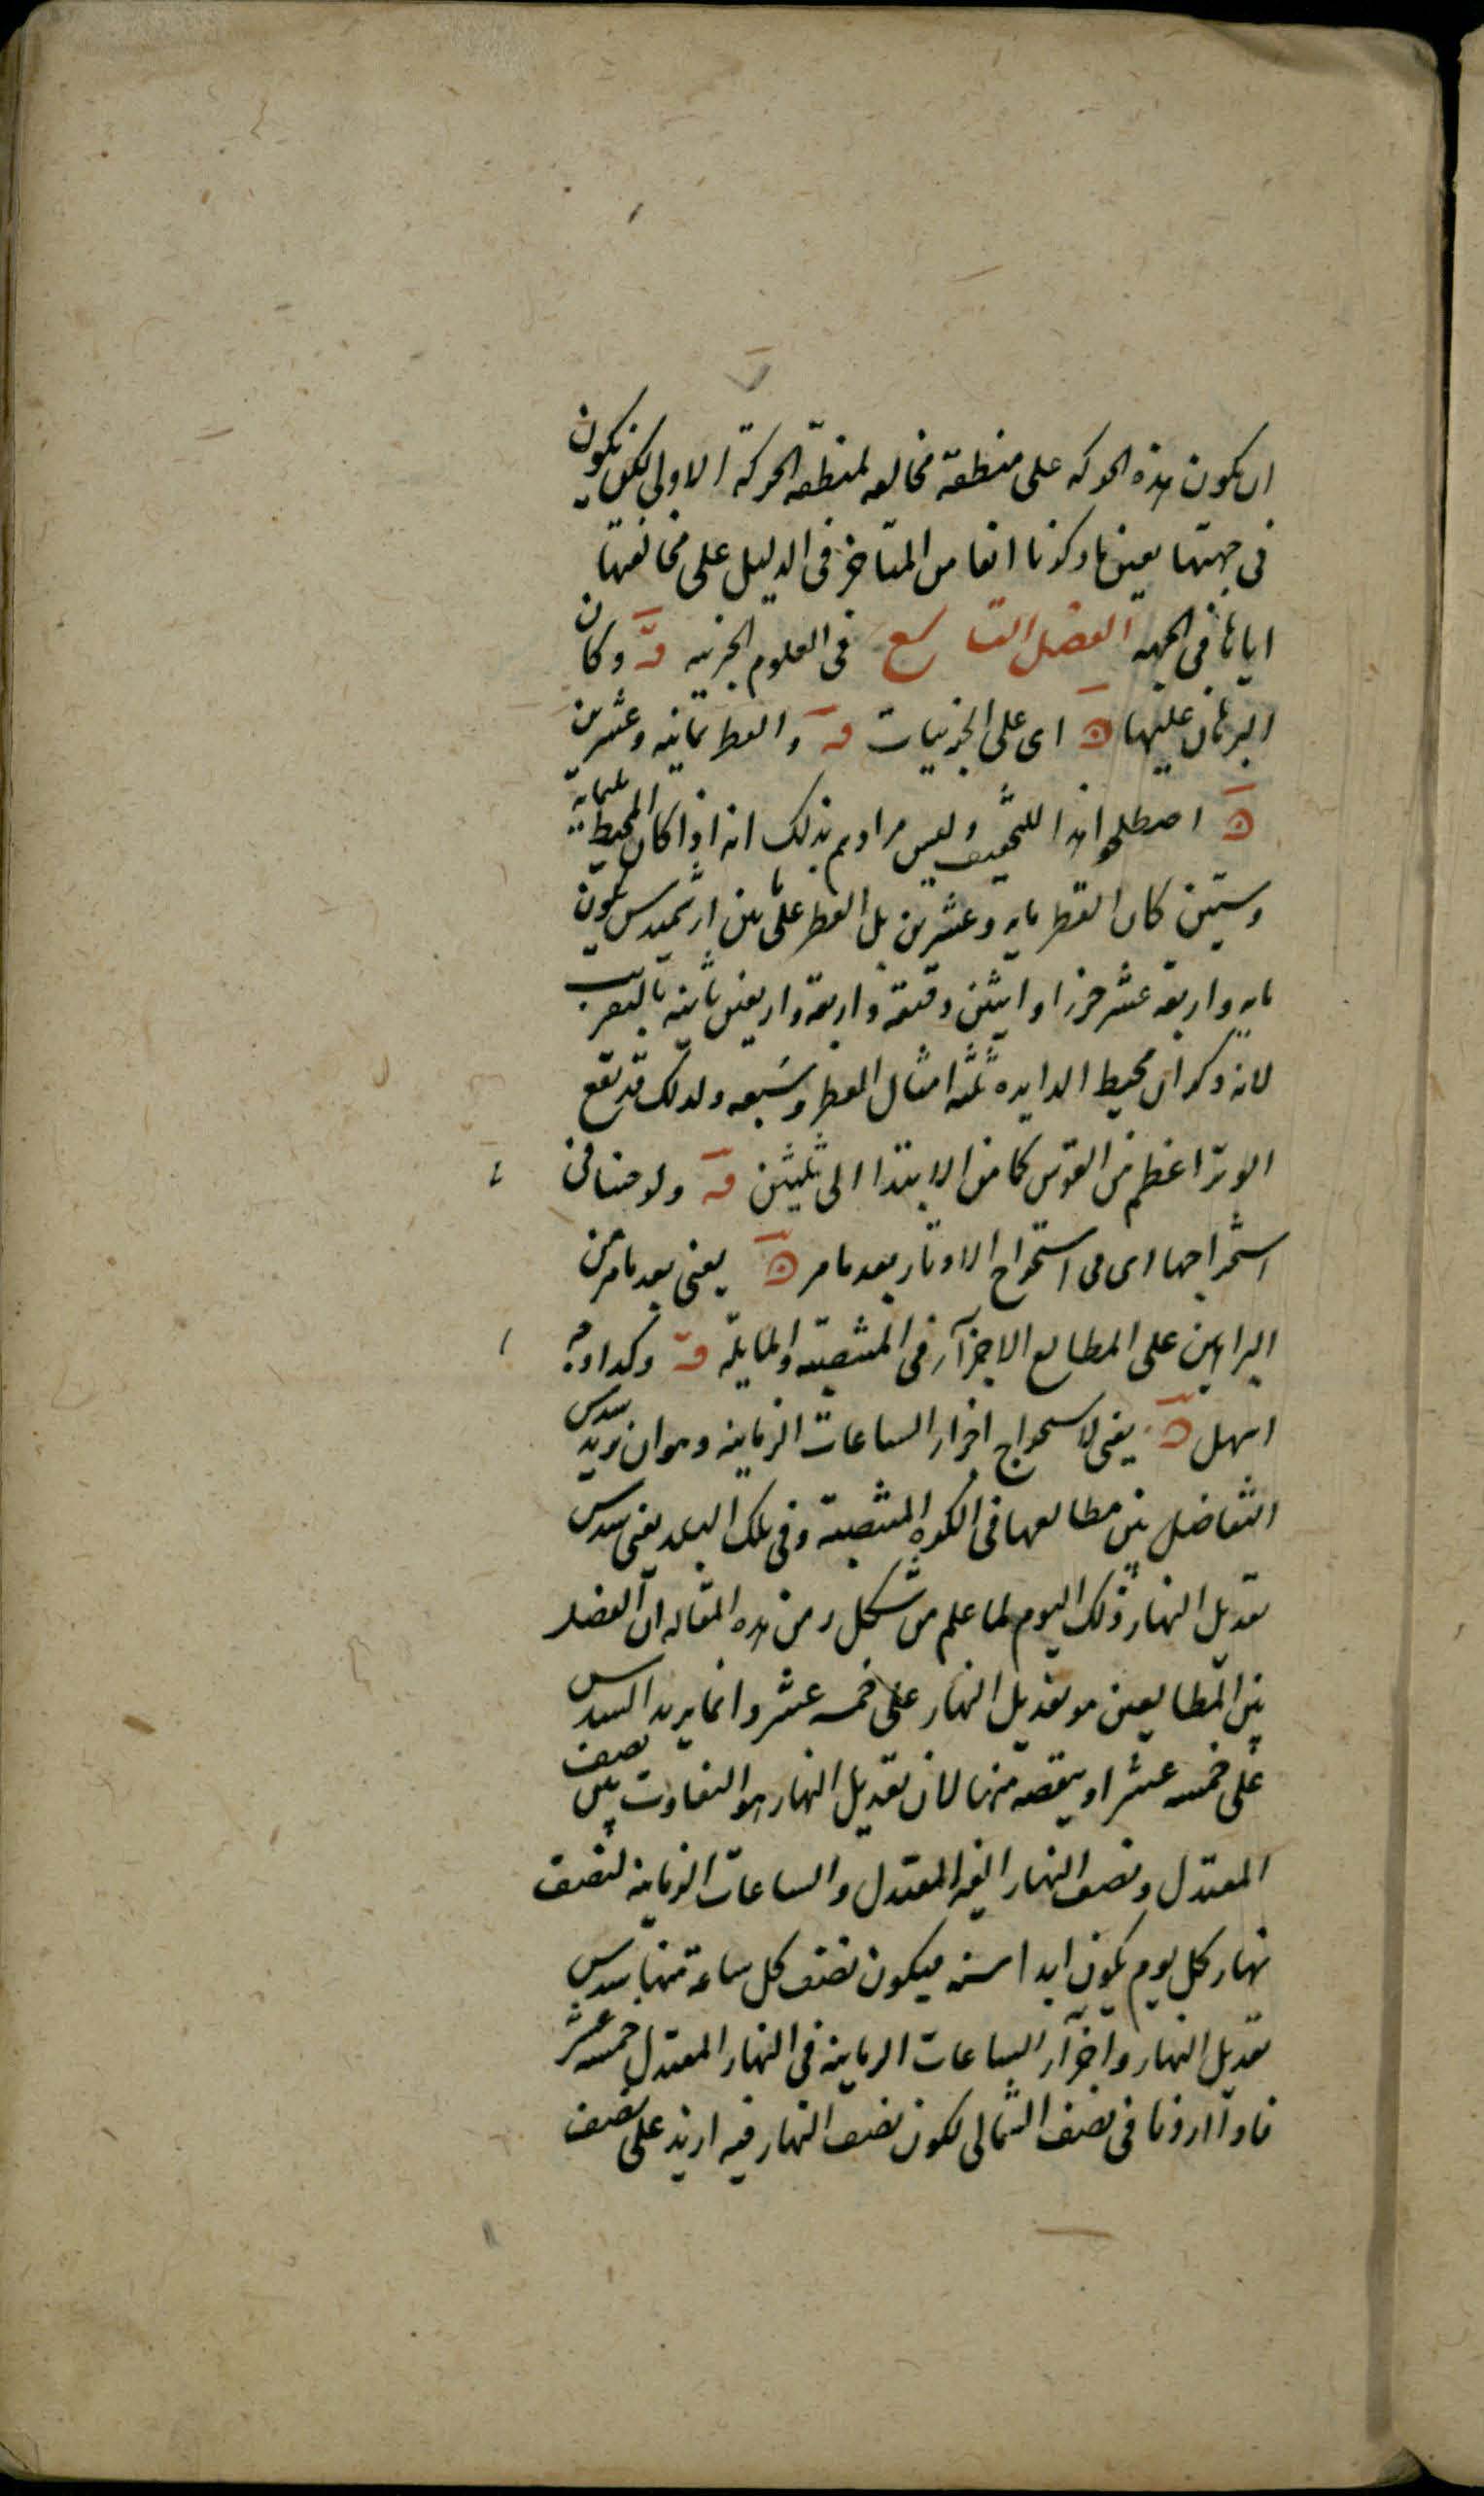 ان يكون هذه الحركه على منطقة مخالفه لمنطقه الحركة الاولى لكن يكون
فى جهتها بعين ما ذكرنا انفا من المتاخر فى الدليل على مخالفتها
اياها فى الجهه الفصل التاسع فى العلوم الجزئيه قه وكان
البرهان عليها اى على الجزئيات قه والقطر ثمانيه وعشرين
اصطلحوا هذا للتخفيف وليس مرادهم بذلك انه اذا كان المحيط ثلثمايه
وستين كان القطر مايه وعشرين بل القطر على ما بين ارشميدس يكون
مايه واربعة عشر جزءا واثنين دقيقة واربعة واربعين ثانيه بالتقريب
لانه ذكر ان محيط الدايره ثلثه امثال القطر وسبعه ولذلك قد يقع
الوتر اعظم من القوس كما من الابتدا الى ثلثين قه ولوحنا فى
استخراجها اى فى استخراج الاوتار بعد ما مر يعنى بعد ما مر من
البراهين على المطالع الاجزآء فى المنتصبه والمايله قه وكذا وجه
اسهل يعنى لاستخراج اجزاء الساعات الزمانيه وهو ان نزيد سدس
التفاضل بين مطالعها فى الكره المنتصبة وفى تلك البلد يعنى سدس
تعديل النهار ذلك اليوم لما علم من شكل من هذه المقاله ان الفضل
بين المطالعين هو تعديل النهار على خمسه عشر وانما يريد السدس
على خمسه عشر او ينقصه منها لان تعديل النهار هو التفاوت بين نصف
المعتدل ونصف النهار الغير المعتدل والساعات الزمانيه لنصف
نهار كل يوم يكون ابدا سته فيكون نصف كل ساعة منها سدس
تعديل النهار واجزآء الساعات الزمانيه فى النهار المعتدل خمسه عشر
فاذا اردنا فى نصف الشمالى لكون نصف النهار فيه ازيد على نصف